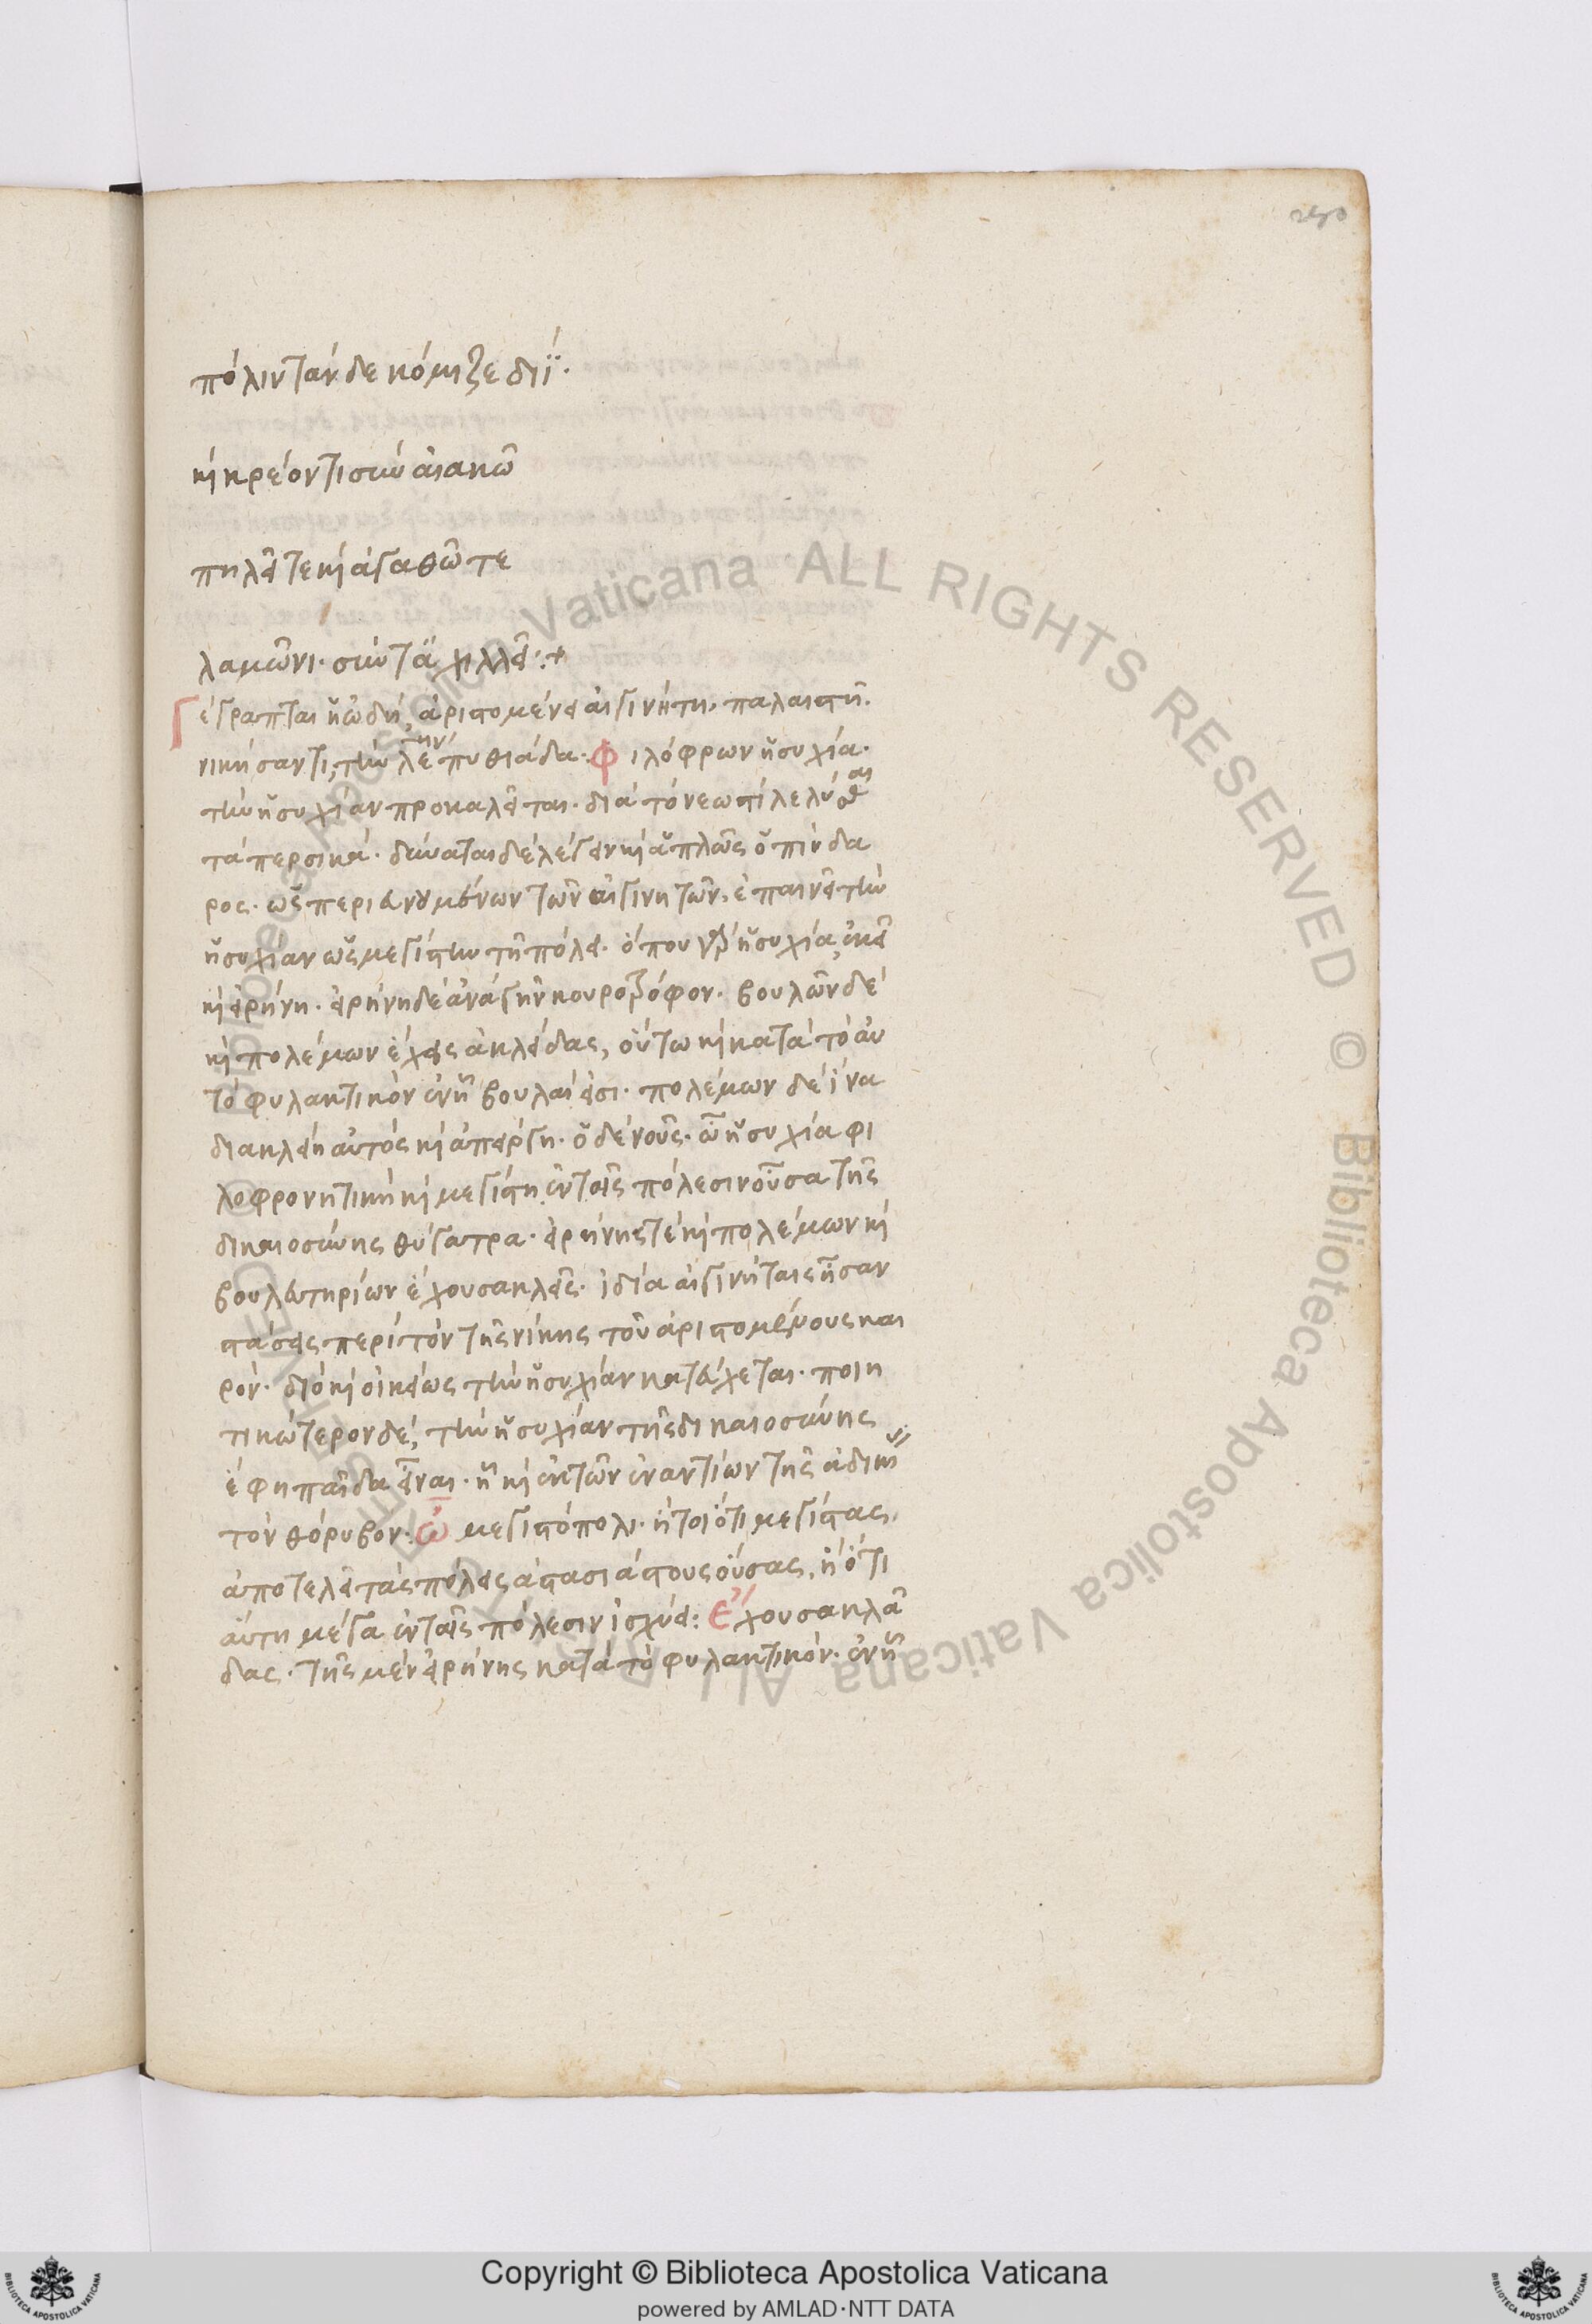 250
πόλιν τάνδε κόμιζε διῒ·
κὶ κρέοντι σὺν αἰακῶ
πηλεῖ τε κὶ ἀγαθῶ τε
λαμῶνι· σύν τ᾽ ἀχιλλεῖ:+
Γέγραπται ἡ ὠδὴ, ἀριστομένει αἰγινήτη, παλαιστῆ·
νικήσαντι, τὴν λε την πυθιάδα· Φιλόφρων ἡσυχία·
τὴν ἡσυχίαν προκαλεῖται· διὰ τὸ νεωστὶ λελύσθαι
τὰ περσικά· δύναται δὲ λέγειν κὶ ἁπλῶς ὁ πίνδα
ρος· ὡς περὶ εὐνουμένων τῶν αἰγινητῶν, ἐπαινεῖ τὴν
ἡσυχίαν ὡς μεγίστην τῆ πόλει· ὅπου γὰρ ἡσυχία, ἐκεῖ
κὶ εἰρήνη· εἰρήνη δὲ ἀνὰ γῆν κουροτρόφον· βουλῶν δὲ
κὶ πολέμων ἔχεις ἀκλεῖδας, οὕτω κὶ κατὰ τὸ αυ
τὸ φυλακτικὸν ἐν ἧ βουλαί εἰσι· πολέμων δὲ ἵνα
διακλείη αὐτὸς κὶ ἀπείργη· ὁ δὲ νοῦς· ὦ ἡσυχία φι
λοφρονητικὴ κὶ μεγίστη ἐν ταῖς πόλεσιν οὖσα τῆς
δικαιοσύνης θύγατρα· εἰρήνης τε κὶ πολέμων κὶ
βουλευτηρίων ἔχουσα κλεῖς· ἰδία αἰγινήταις ἦσαν
στάσεις περὶ τὸν τῆς νίκης τοῦ ἀριστομένους και
ρόν· διὸ κὶ οἰκείως τὴν ἡσυχίαν κατεύχεται· ποιη
τικώτερον δὲ, τὴν ἡσυχίαν τῆς δικαιοσύνης
ἔφη παῖδα εἶναι· ἢ κὶ ἐκ τῶν ἐναντίων τῆς ἀδικίας
τὸν θόρυβον· ὦ μεγιστόπολι· ἤτοι ὅτι μεγίστας,
ἀποτελεῖ τὰς πόλεις ἀστασιάστους οὔσας, ἢ ὅτι
αὕτη μέγα ἐν ταῖς πόλεσιν ἰσχύει: Ἔχουσα κλαῖ
δας· τῆς μὲν εἰρήνης κατὰ τὸ φυλακτικόν· ἐν ἧ
Copyright © Biblioteca Apostolica Vaticana
powered by AMLAD·NTT DATA